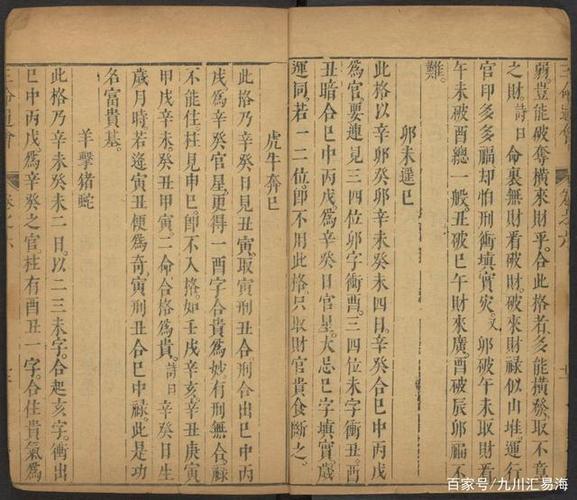 弱豈能破奪橫來財乎。合此格者多能橫發取不意
之財。詩曰命裏無財看破財。破來財祿似山堆。運行
官印多多福。却怕刑衝填實灾。又卯破午未取財看
午未被酉總一般。丑破巳午財來廣。酉破辰卯福不
難。
卯未遥巳
此格以辛卯癸卯辛未癸未四日。辛癸合巳中丙戊
爲官。要連見三四位卯字衝酉。三四位未字衝丑。酉
丑暗合巳中丙戊。爲辛癸日官星。大忌巳字填實。歲
運同。若一二位。卽不用此格。只取財官貴食斷之。
虎牛奔巳
此格乃辛癸日見丑寅。取寅刑丑合出巳中丙
戊。爲辛癸官星。更得一酉字合貴爲妙。有刑無合。祿
不能住。柱見申巳。卽不入格。如壬戌辛亥。辛丑庚寅。
甲戌辛未。癸丑甲寅。二命合格爲貴。詩曰辛癸日生
歲月時。若逢寅丑便爲奇。寅刑丑合巳中祿。此是功
名富貴基。
羊擊猪蛇
此格乃辛未癸未二日。以二三未字。合起亥字。衝出
巳中丙戊。爲辛癸之官。柱有酉丑一字。合住貴氣爲
百家号/九川汇易海